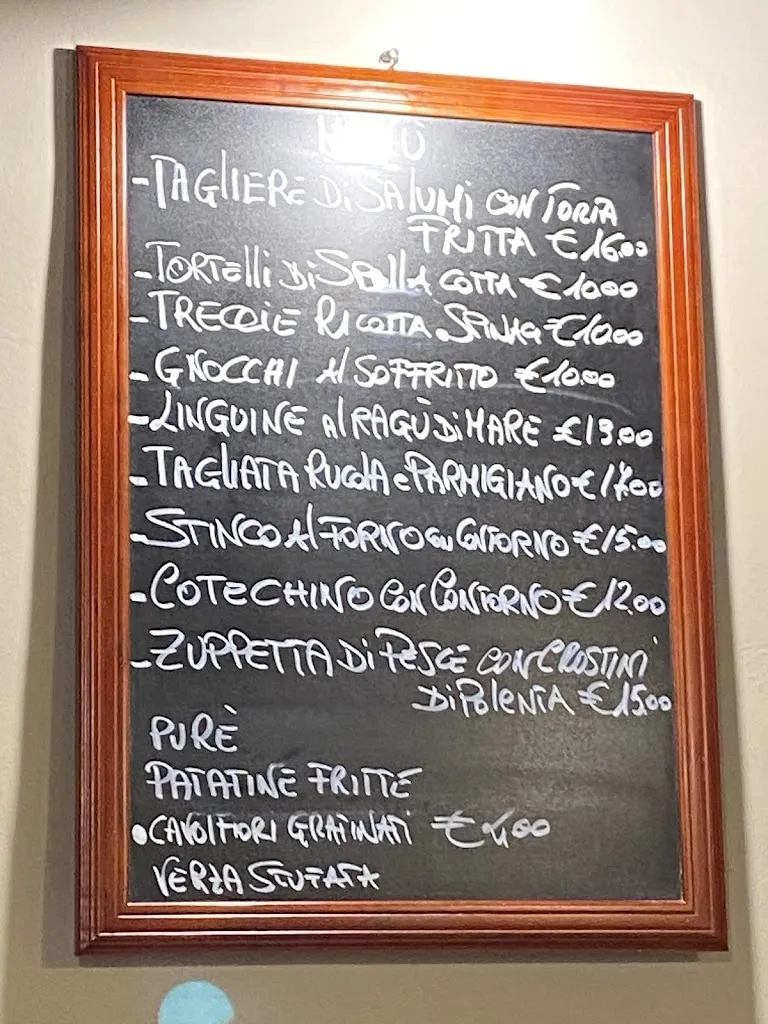 MENÙ
-TAGLIERE Di SALUMI CON TORTA
FRITTA €16.00
-TORTELLI Di SPALLA COTTA €10.00
-TRECCIE RICOTTA SPINACI €10.00
-GNOCCHI Al SOFFRITTO €10.00
-LINGUINE Al RAGÙ Di MARE €13.00
-TAGLIATA RUCOLA e PARMIGIANO €17.00
-STINCO Al FORNO CON CONTORNO €15.00
-COTECHINO CON CONTORNO €12.00
-ZUPPETTA Di PESCE CON CROSTINI
Di POLENTA €15.00
PURÈ
PATATINE FRITTE
•CAVOLFIORI GRATINATI €4,00
VERZA STUFATA